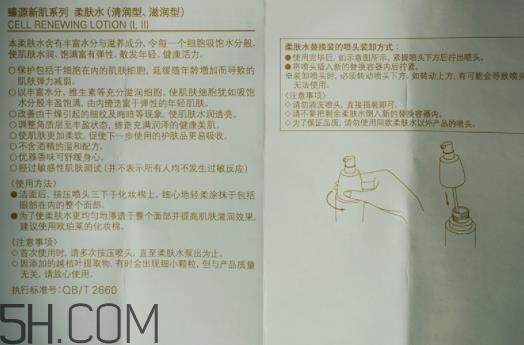 臻源新肌系列 柔肤水（清润型、滋润型）
CELL RENEWING LOTION (I, II)
本柔肤水含有丰富水分与滋养成分，令每一个细胞吸饱水分般，
使肌肤水润、饱满富有弹性，散发年轻、健康活力。
○保护包括干细胞在内的肌肤细胞，延缓随年龄增加而导致的
肌肤弹力减弱。
○以丰富水分、维生素等充分滋润细胞，使肌肤细胞犹如吸饱
水分般丰盈饱满，由内缔造富于弹性的年轻肌肤。
○改善由干燥引起的细纹及晦暗等现象，使肌肤水润透亮。
○调整角质层至丰盈状态，缔造充满润泽的健康美肌。
○使肌肤更加柔软，促使下一步使用的护肤品更易吸收。
○不含酒精的温和配方。
○优雅香味可舒缓身心。
○经过敏感性肌肤测试（并不表示所有人均不发生过敏反应）
〈使用方法〉
●洁面后，按压喷头三下于化妆棉上，细心地轻柔涂抹于包括
眼部在内的整个面部。
●为了使柔肤水更均匀地渗透于整个面部并提高肌肤滋润效果，
建议使用欧珀莱的化妆棉。
〈注意事项〉
◇首次使用时，请多次按压喷头，直至柔肤水泵出为止。
◇因添加的越桔叶提取物，有时会出现细小颗粒，但与产品质量
无关，请放心使用。
执行标准号：QB/T 2660
柔肤水替换装的喷头装卸方式：
●使用完毕后，如示意图所示，紧握喷头下方后拧出喷头。
●将喷头插入新的替换容器内后拧紧。
※装卸喷头时，必须转动喷头下方，如转动上方，有可能会导致喷头
无法使用。
〈注意事项〉
◇请勿清洗喷头，直接插装即可。
◇请不要把剩余柔肤水倒入新的替换容器内。
◇为了保证品质，请勿使用同款柔肤水以外产品的喷头。
5H.COM